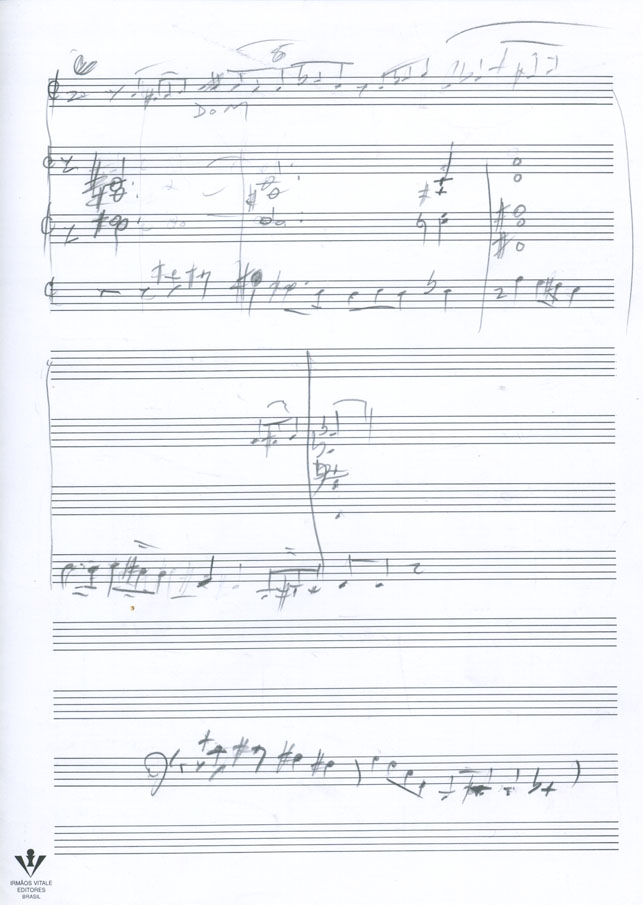 8
Do M
IRMÃOS VITALE
EDITORES
BRASIL